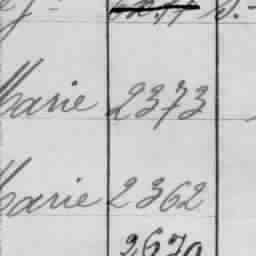 Marie 2373
Marie 2362
2670